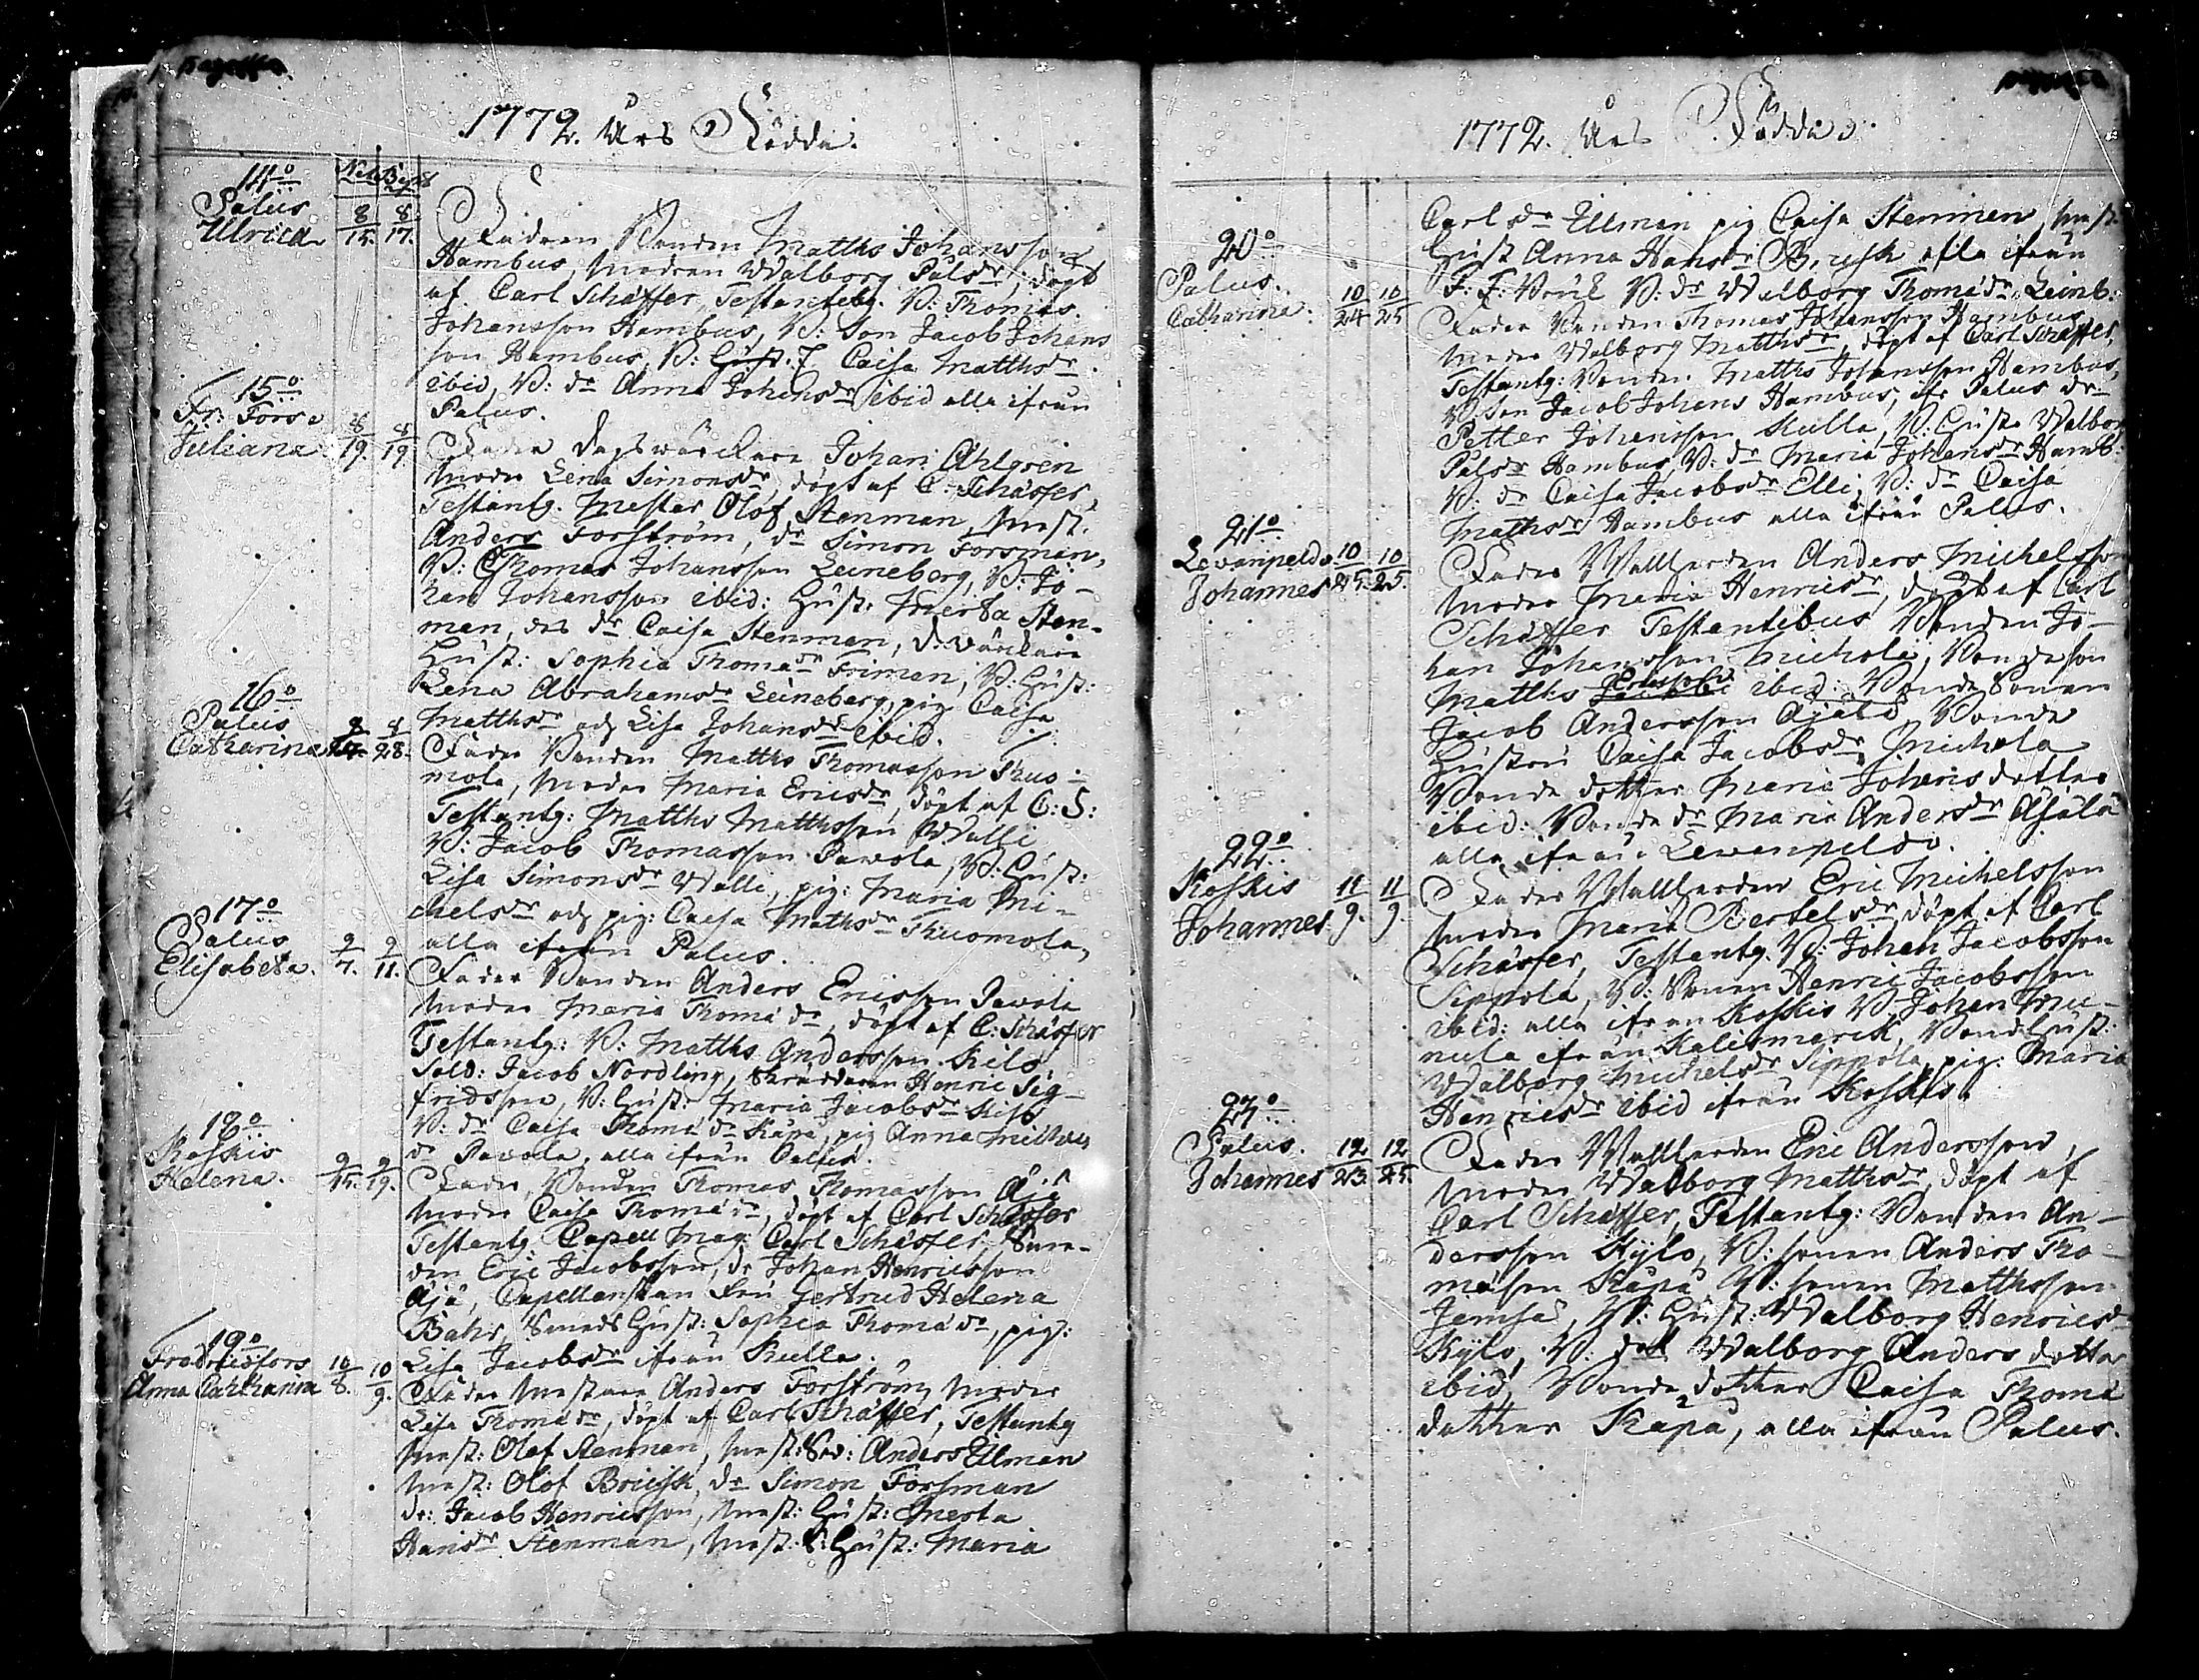 1772. Års Födde.
14o
Palus
Ulrica
Nat. Bapt.
8/15. 8/17.
Fadren Bonden Matths Johansson
Hambus, Modren Walborg Pålsdr, döpt
af Carl Schæffer, Testantebg. B: Thomas
Johansson Hambus, B: Son Jacob Johans
son Hambus, B: Caisa Matthsdr
ibid, B: dr Anna Johansdr ibid alla ifrån
Palus.
15o
Fr: Fors
Juliana
8/19. 8/19.
Fader Johan Ahlgren
Moder Lena Simonsdr, döpt af C: Schæffer,
Testantg. Mester Olof Stenman, Mest:
Anders Forsström, dr Simon Forsman,
B: Thomas Johansson Leineberg, B: Jo-
han Johansson ibid: Hust: Merta Sten-
man, des dr Caisa Stenman,
Hust: Sophia Thomædr Friman, B: Hust:
Lena Abrahamsdr Leineberg, pig Caisa
Matthsdr och Lisa Johansdr ibid.
16o
Palus
Catharina
8/28.
Fader Bonden Matths Thomasson Thuo-
mola, Moder Maria Ericsdr, döpt af C: S:
Testantg: Matths Matthsson Walli
B: Jacob Thomasson Pavola, B: Hust:
Lisa Simonsdr Walli, pig: Maria Mi-
chelsdr och pig: Caisa Mathsdr Thuomola,
alla ifrån Palus.
17o
Palus
Elisabeta.
9/7. 9/11.
Fader Bonden Anders Ericsson Pavola
Moder Maria Thomædr, döpt af C: Schæffer
Testantg: B: Matths Andersson Kilo,
Sold: Jacob Nordling, Skräddaren Henric Sig-
fridsson, B: Hust: Maria Jacobsdr Kilo
B: dr Caisa Thomædr Kåpa, pig Anna Michels
dr Pavola, alla ifrån Palus.
18o
Koskis
Helena.
9/15. 9/19.
Fader, Bonden Thomas Thomasson Äjä
Moder Caisa Thomædr, döpt af Carl Schæffer
Testantg Capell: Mag: Carl Schæffer, Sme-
den Eric Jacobsson, dr Johan Henricsson
Äjä, Capellanskan Fru Gertrud Helena
Bahr, Smeds Hust: Sophia Thomædr, pig:
Lisa Jacobsdr ifrån Kulla.
19o
Fredricsfors
Anna Catharina
10/8. 10/9.
Fader Mestaren Anders Forsström, Moder
Lisa Thomædr, döpt af Carl Schæffer, Testantg
Mest: Olof Stenman, Mest: Sv: Anders Ellman
Mest: Olof Briesk, dr Simon Forsman
dr: Jacob Henricsson, Mest: Hust: Merta
Hansdr Stenman, Mest: S: Hust: Maria
1772. Års Födde.
Carlsdr Ellman pig Caisa Stenman, Mest:
Hust Anna Hansdr Briesk alla ifrån
F: F: Bruk B: dr Walborg Thomædr Leineb:
20o
Palus.
Catharina.
10/24 10/25
Fader Bonden Thomas Johansson Hambus,
Moder Walborg Matthsdr, döpt af Carl Schæffer,
Testantg: Bonden Matths Johansson Hambus,
B: Son Jacob Johans Hambus, ifr Palus dr
Petter Johansson Kulla, B: Hustr Walborg
Pålsdr Hambus, B: dr Maria Johansdr Hamb:
B: dr Caisa Jacobsdr Elli, B: dr Caisa
Mathsdr Hambus alla ifrån Palus.
21o
Levanpeldo
Johannes
10/25. 10/25.
Fader Wallherden Anders Michelsson
Moder Maria Henricsdr, döpt af Carl
Schæffer Testantibus Bonden Jo-
han Johansson Michola, Bondeson
Matths Ericsson ibid: Bonde Sonen
Jacob Andersson Äjälä, Bonde
Hustru Caisa Jacobsdr Michola
Bonde dotter Maria Johansdotter
ibid: Bonde dr Maria Andersdr Äjälä
alla ifrån Levanpeldo.
22o
Koskis
Johannes
11/9. 11/9.
Fader Wallherden Eric Michelsson
Moder Maria Bertelsdr, döpt af Carl
Schæffer, Testantg. B: Johan Jacobsson
Sippola, B: Sonen Henric Jacobsson
ibid: alla ifrån Koskis B. Johan Mu-
nula ifrån Kalismarck, Bond: Hust:
Walborg Michelsdr Sippola, pig: Maria
Henricsdr ibid ifrån Koskis.
23o
Palus.
Johannes
12/23. 12/25.
Fader Wallherden Eric Andersson,
Moder Walborg Matthsdr, döpt af
Carl Schæffer, Testantg: Bonden An-
dersson Kylo, B: sonen Anders Tho-
mason Kåpa B: sonen Matthsson
Jemså, B: Hust: Walborg Henricsdr
Kylo, B. dot Walborg Anders dotter
ibid, Bonde dotter Caisa Thomæ
dotter Kåpa, alla ifrån Palus.